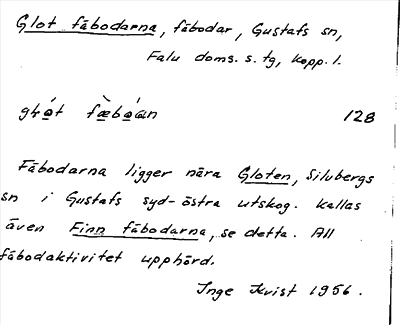 Glot fäbodarna, fäbodar, Gustafs sn,
Falu doms. s. tg, Kopp. l.
128
Fäbodarna ligger nära Gloten, Silvbergs
sn i Gustafs syd-östra utskog. Kallas
även Finn fäbodarna, se detta. All
fäbodaktivitet upphörd.
Inge Kvist 1956.